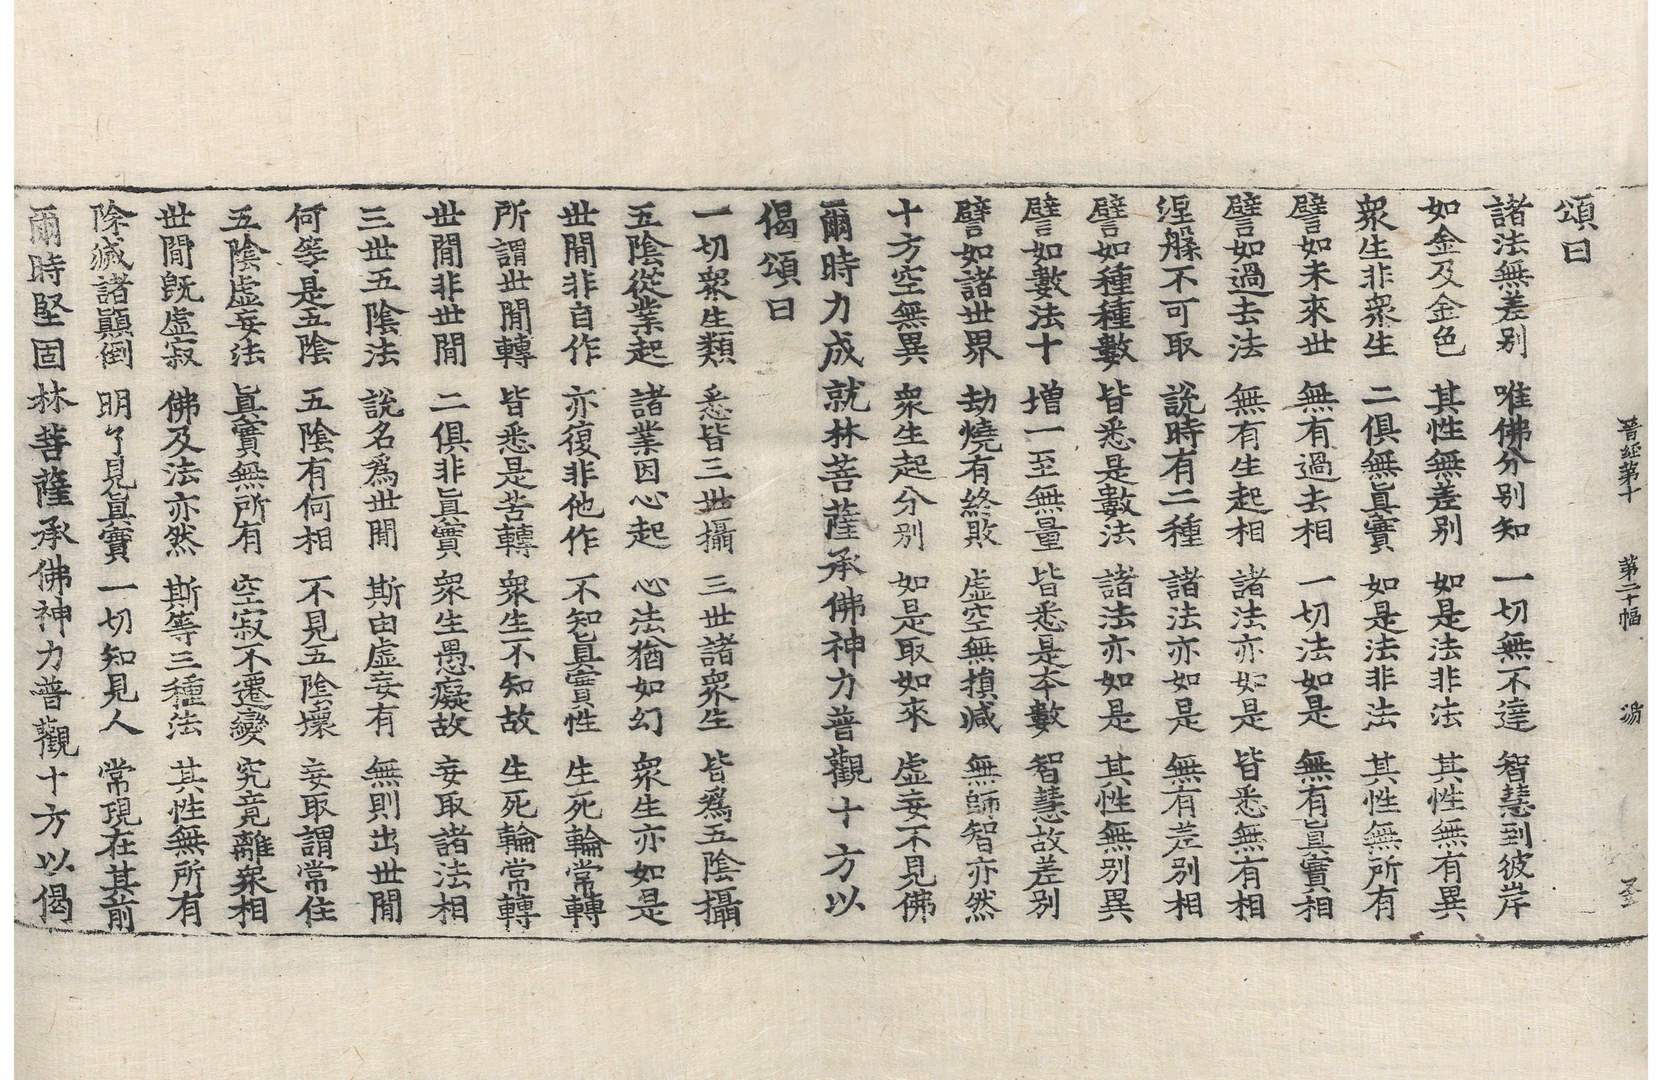 晉經第十 第二十幅 湯
頌曰
諸法無差别 唯佛分别知 一切無不達 智慧到彼岸
如金及金色 其性無差别 如是法非法 其性無有異
衆生非衆生 二俱無眞實 如是法非法 其性無所有
譬如未來世 無有過去相 一切法如是 無有眞實相
譬如過去法 無有生起相 諸法亦如是 皆悉無有相
涅槃不可取 說時有二種 諸法亦如是 無有差别相
譬如種種數 皆悉是數法 諸法亦如是 其性無别異
譬如數法十 增一至無量 皆悉是本數 智慧故差别
譬如諸世界 劫燒有終敗 虛空無損減 無師智亦然
十方空無異 衆生起分别 如是取如來 虛妄不見佛
爾時力成就林菩薩承佛神力普觀十方以
偈頌曰
一切衆生類 悉皆三世攝 三世諸衆生 皆爲五陰攝
五陰從業起 諸業因心起 心法猶如幻 衆生亦如是
世間非自作 亦復非他作 不知眞實性 生死輪常轉
所謂世間轉 皆悉是苦轉 衆生不知故 生死輪常轉
世間非世間 二俱非眞實 衆生愚癡故 妄取諸法相
三世五陰法 說名爲世間 斯由虛妄有 無則出世間
何等是五陰 五陰有何相 不見五陰壞 妄取謂常住
五陰虛妄法 眞實無所有 空寂不遷變 究竟離衆相
世間旣虛寂 佛及法亦然 斯等三種法 其性無所有
除滅諸顚倒 明了見眞實 一切知見人 常現在其前
爾時堅固林菩薩承佛神力普觀十方以偈